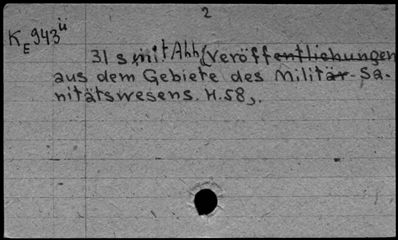 2
K E 943 ü
31 s mit Abb (Veröffentlichungen
aus dem Gebiete des Militär-Sa-
nitätswesens. H.58).